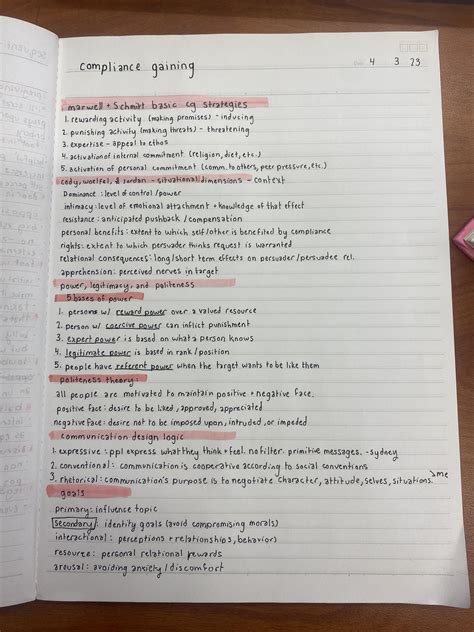 compliance gaining
4 3 23
marwell + Schmitt basic cg strategies
1. rewarding activity (making promises) - inducing
2. punishing activity (making threats) - threatening
3. expertise - appeal to ethos
4. activation of internal commitment (religion, diet, etc.)
5. activation of personal commitment (comm. to others, peer pressure, etc.)
cody, woelfel, & Jordan - situational dimensions - context
Dominance: level of control / power
intimacy: level of emotional attachment + knowledge of that effect
resistance: anticipated pushback / compensation
personal benefits: extent to which self/other is benefited by compliance
rights: extent to which persuader thinks request is warranted
relational consequences: long/short term effects on persuader/persuadee rel.
apprehension: perceived nerves in target
power, legitimacy, and politeness
5 bases of power
1. persons w/ reward power over a valued resource
2. person w/ coercive power can inflict punishment
3. expert power is based on what a person knows
4. legitimate power is based in rank / position
5. people have referent power when the target wants to be like them
politeness theory:
all people are motivated to maintain positive + negative face.
positive face: desire to be liked, approved, appreciated
negative face: desire not to be imposed upon, intruded, or impeded
communication design logic
1. expressive: ppl express what they think + feel. no filter. primitive messages. - sydney
2. conventional: communication is cooperative according to social conventions
3. rhetorical: communication's purpose is to negotiate character, attitude, selves, situations. → me
goals
primary: influence topic
secondary: identity goals (avoid compromising morals)
interactional: perceptions + relationships, behavior)
resource: personal relational rewards
arousal: avoiding anxiety / discomfort